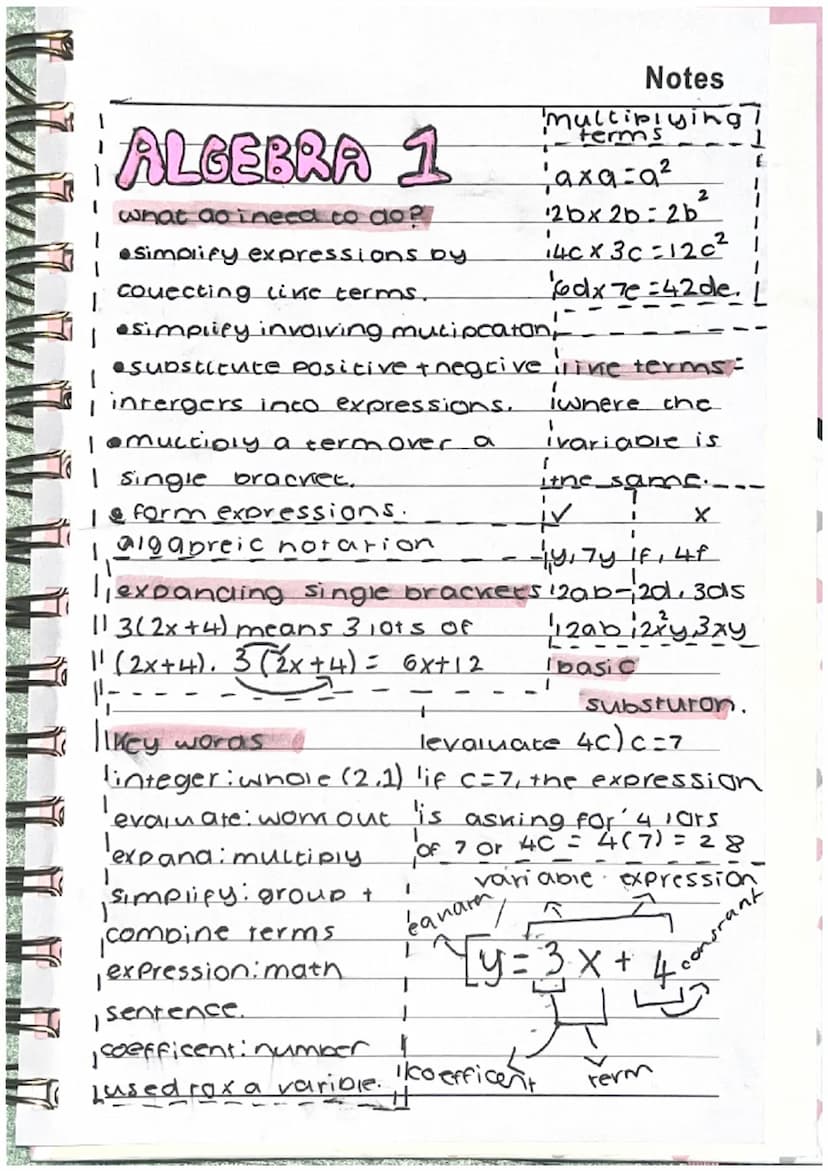 Notes
ALGEBRA 1
what do i need to do?
•simplify expressions by
collecting like terms.
•simplify involving mutipcaton
•substitute positive + negtive
intergers into expressions.
•multiply a term over a
single bracket.
• form expressions.
algabreic notation
multiplying
terms
axa=a²
2bx 2b = 2b²
4c x 3c = 12c²
6dx 7e = 42de.
like terms =
where the
variable is
the same.
✓ x
y, 7y f, 4f
2ab- 2d, 3ds
12ab 2x²y, 3xy
expanding single brackets
3(2x+4) means 3 lots of
(2x+4). 3(2x+4) = 6x+12
basic
substuron.
evaluate 4c) c=7
if c=7, the expression
is asking for '4 lots
of 7 or 4c = 4(7) = 28
Key words
integer: whole (2,1)
evaluate: work out
expand: multiply
simplify: group +
combine terms
expression: math
sentence.
coefficent: number
used for a varible.
variable expression
constant
y = 3x + 4
coefficent term